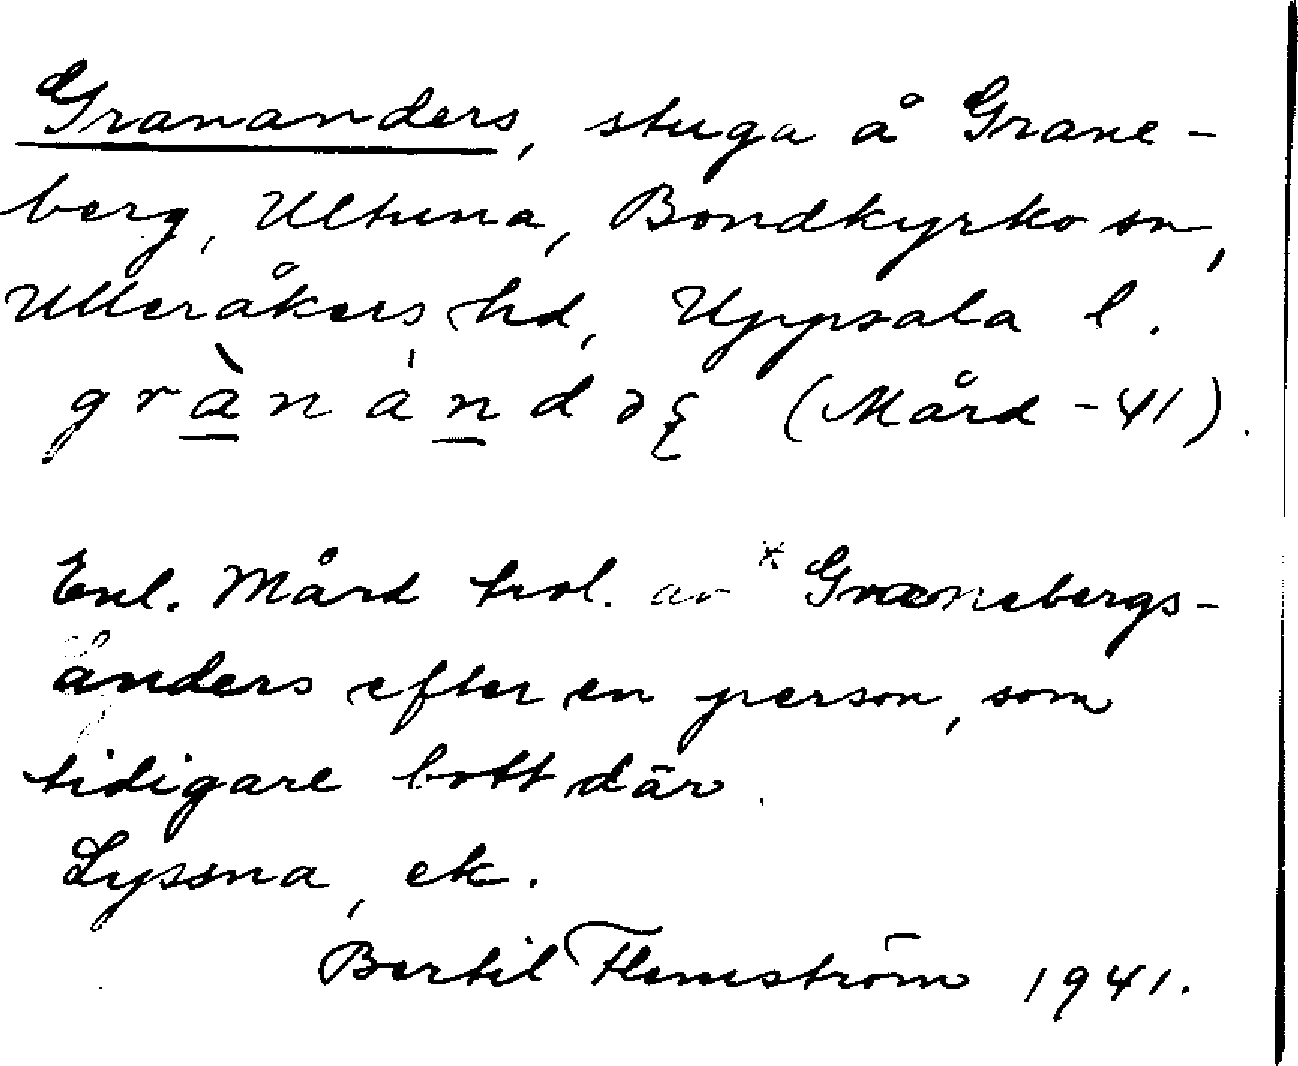 Grananders, stuga å Grane-
berg, Ultuna, Bondkyrko sn,
Ulleråkers hd, Uppsala l.
grànándəʂ (Mård -41).
Enl. Mård trol. av *Granebergs-
anders efter en person, som
tidigare bott där.
Lyssna, ek.
Bertil Flemström 1941.